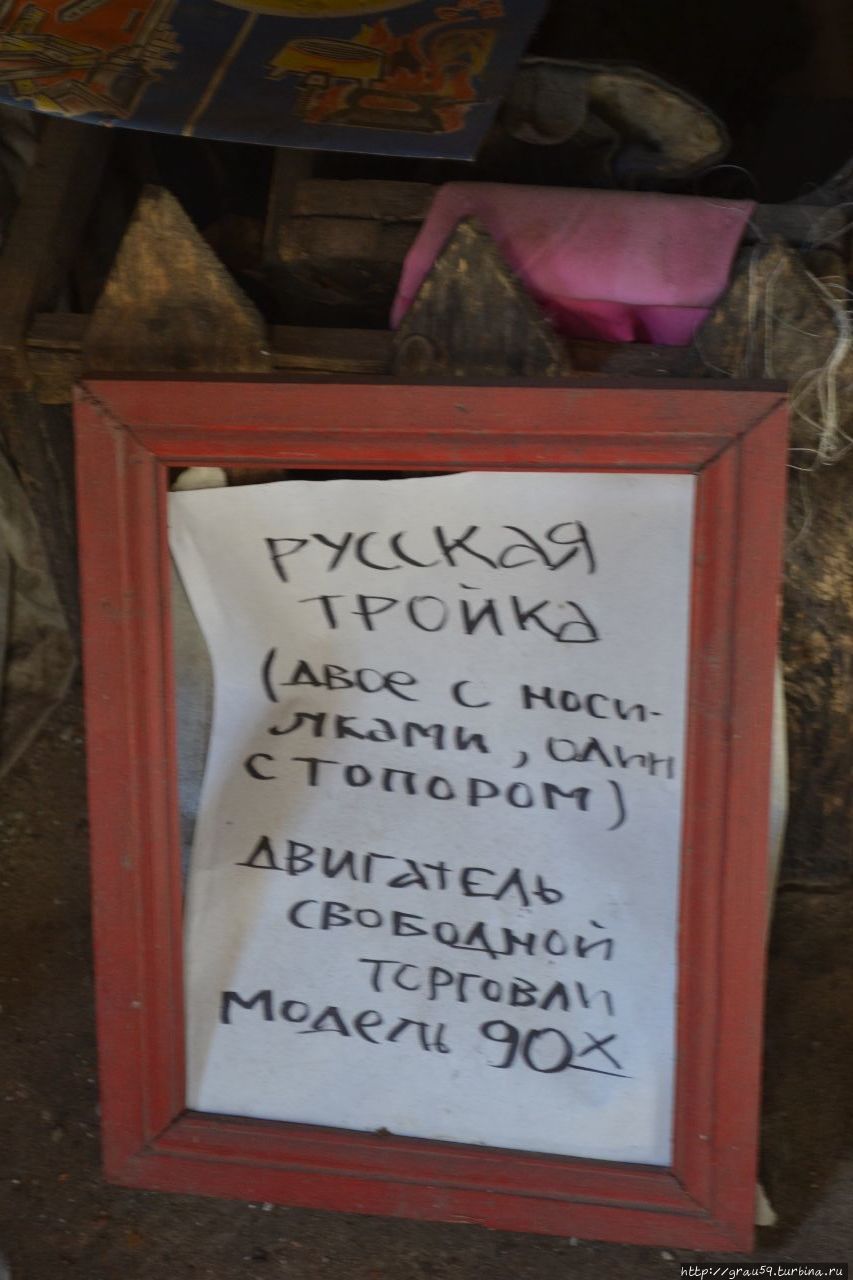 РУССКАЯ
ТРОЙКА
(ДВОЕ С НОСИ-
ЛКАМИ, ОДИН
С ТОПОРОМ)
ДВИГАТЕЛЬ
СВОБОДНОЙ
ТОРГОВЛИ
МОДЕЛЬ 90Х
http://grau59.turbina.ru